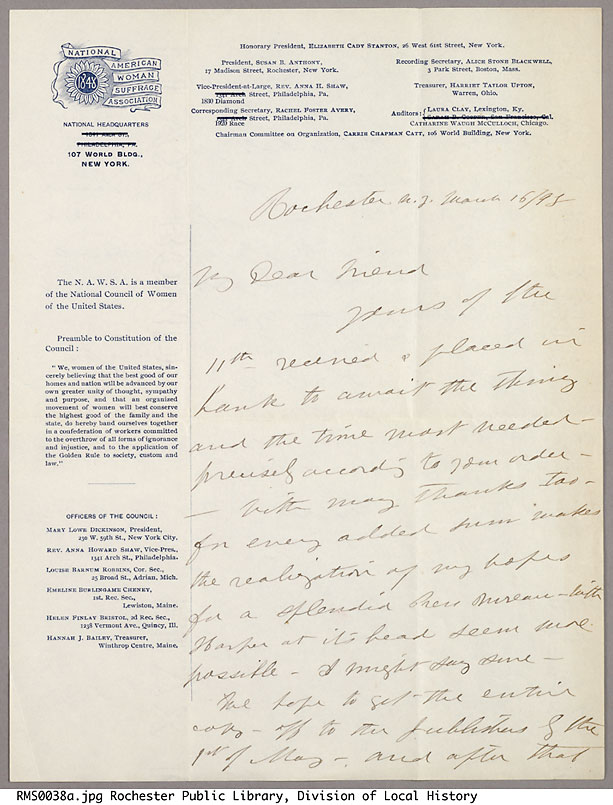 NATIONAL
AMERICAN
WOMAN
SUFFRAGE
ASSOCIATION
1848
NATIONAL HEADQUARTERS
1341 ARCH ST.,
PHILADELPHIA, PA.
107 WORLD BLDG.,
NEW YORK.
Honorary President, ELIZABETH CADY STANTON, 26 West 61st Street, New York.
President, SUSAN B. ANTHONY,
17 Madison Street, Rochester, New York.
Vice-President-at-Large, REV. ANNA H. SHAW,
1341 Arch Street, Philadelphia, Pa.
1830 Diamond
Corresponding Secretary, RACHEL FOSTER AVERY,
Arch Street, Philadelphia, Pa.
1920 Race
Recording Secretary, ALICE STONE BLACKWELL,
3 Park Street, Boston, Mass.
Treasurer, HARRIET TAYLOR UPTON,
Warren, Ohio.
Auditors:
LAURA CLAY, Lexington, Ky.
SARAH B. COOPER, San Francisco, Cal.
CATHARINE WAUGH MCCULLOCH, Chicago.
Chairman Committee on Organization, CARRIE CHAPMAN CATT, 106 World Building, New York.
Rochester N.Y. March 16/98
The N. A. W. S. A. is a member
of the National Council of Women
of the United States.
Preamble to Constitution of the
Council:
"We, women of the United States, sin-
cerely believing that the best good of our
homes and nation will be advanced by our
own greater unity of thought, sympathy
and purpose, and that an organized
movement of women will best conserve
the highest good of the family and the
state, do hereby band ourselves together
in a confederation of workers committed
to the overthrow of all forms of ignorance
and injustice, and to the application of
the Golden Rule to society, custom and
law."
OFFICERS OF THE COUNCIL:
MARY LOWE DICKINSON, President,
230 W. 59th St., New York City.
REV. ANNA HOWARD SHAW, Vice-Pres.,
1341 Arch St., Philadelphia.
LOUISE BARNUM ROBBINS, Cor. Sec.,
25 Broad St., Adrian, Mich.
EMELINE BURLINGAME CHENEY,
1st. Rec. Sec.,
Lewiston, Maine.
HELEN FINLAY BRISTOL, 2d Rec. Sec.,
1238 Vermont Ave., Quincy, Ill.
HANNAH J. BAILEY, Treasurer,
Winthrop Centre, Maine.
My Dear Friend
Yours of the
11th received & placed in
bank to await the thing
and the time most needed -
precisely according to your order -
- With many thanks too -
for every added sum makes
the realization of my hopes
for a splendid Press Bureau - with
Harper at its head seem more
possible - I might say sure -
We hope to get the entire
copy - off to the publishers by the
1st of May - and after that
RMS0038a.jpg Rochester Public Library, Division of Local History